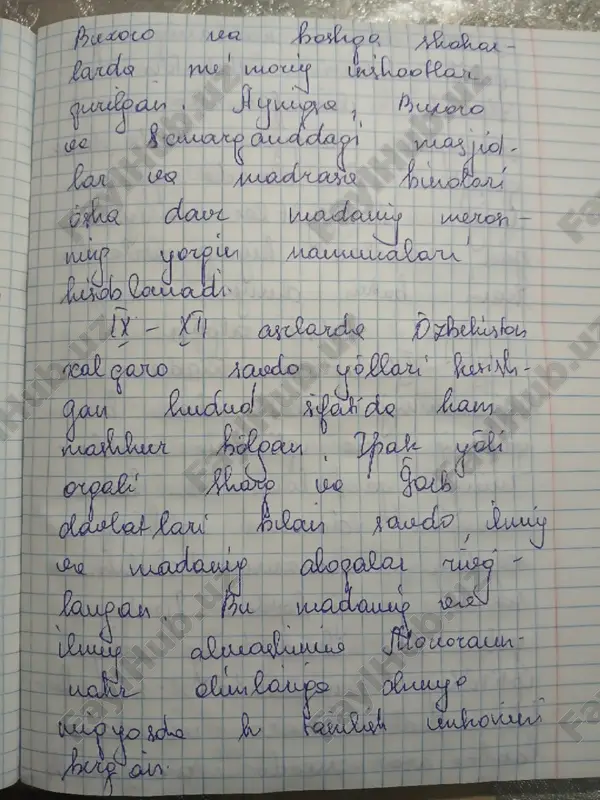 Buxoro va boshqa shahar-
larda me'moriy inshootlar
qurilgan. Ayniqsa, Buxoro
va Samarqanddagi masjid-
lar va madrasa binolari
o'sha davr madaniy merosi-
ning yorqin namunalari
hisoblanadi.
IX - XII asrlarda Özbekiston
xalqaro savdo yöllari kesish-
gan hudud sifatida ham
mashhur bölgan. Ipak yöli
orqali Sharq va Ğarb
davlatlari bilan savdo, ilmiy
va madaniy aloqalar rivoj-
langan. Bu madaniy va
ilmiy almashinuv Movaroun-
nahr olimlariga dunyo
miqyosda tanilish imkonini
bergan.
FayllHub.uz